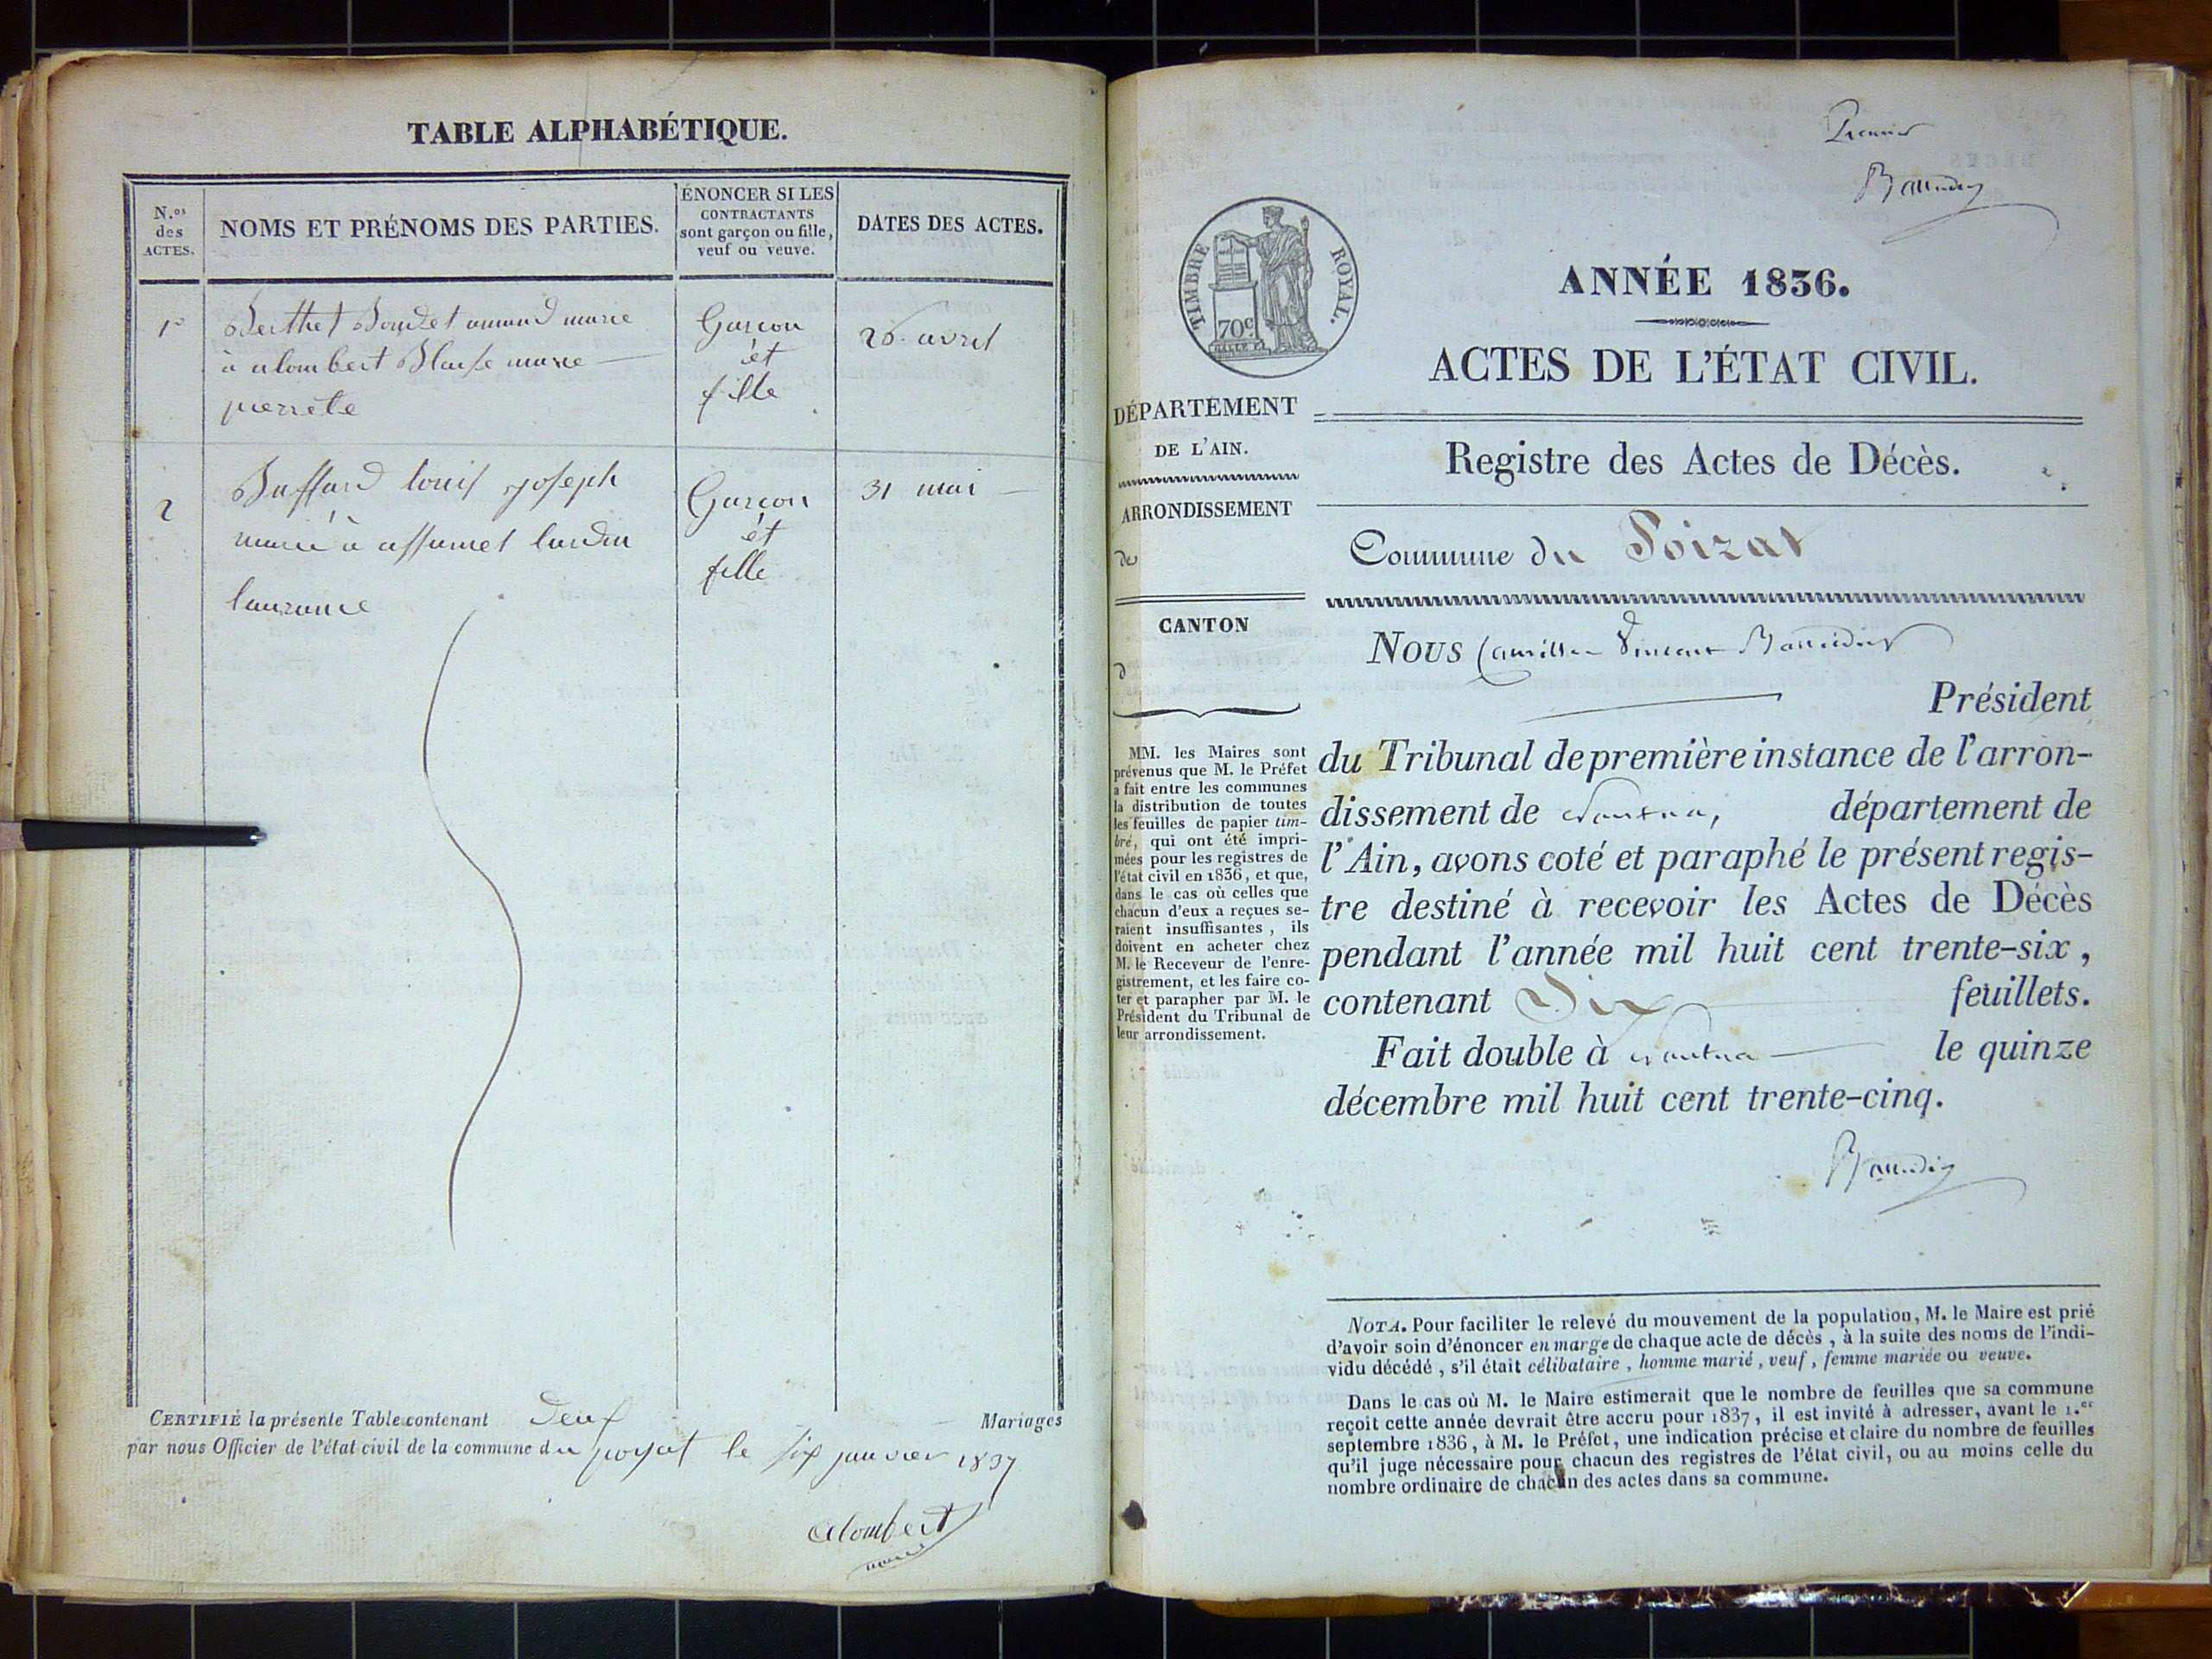 TABLE ALPHABÉTIQUE.
N.os des ACTES.
NOMS ET PRÉNOMS DES PARTIES.
ÉNONCER SI LES
CONTRACTANTS
sont garçon ou fille,
veuf ou veuve.
DATES DES ACTES.
1º
Berthet Boudet armand marie
à alombert marie
pierrete
Garcon
et
fille
26 avril
2
Buffard louis joseph
marié à assumel lurdin
laurance
Garcon
et
fille
31 mai
CERTIFIÉ la présente Table contenant deux Mariages
par nous Officier de l'état civil de la commune du poizat le six janvier 1837
Alombert
maire
Premier
Baudin
TIMBRE ROYAL.
70c
ANNÉE 1836.
ACTES DE L'ÉTAT CIVIL.
DÉPARTEMENT
DE L'AIN.
ARRONDISSEMENT
de
CANTON
d
MM. les Maires sont
prévenus que M. le Préfet
a fait entre les communes
la distribution de toutes
les feuilles de papier tim-
bré, qui ont été impri-
mées pour les registres de
l'état civil en 1836, et que,
dans le cas où celles que
chacun d'eux a reçues se-
raient insuffisantes, ils
doivent en acheter chez
M. le Receveur de l'enre-
gistrement, et les faire co-
ter et parapher par M. le
Président du Tribunal de
leur arrondissement.
Registre des Actes de Décès.
Commune du Poizat
NOUS Vincent
Président
du Tribunal de première instance de l'arron-
dissement de Nantua, département de
l'Ain, avons coté et paraphé le présent regis-
tre destiné à recevoir les Actes de Décès
pendant l'année mil huit cent trente-six,
contenant Dix feuillets.
Fait double à Nantua le quinze
décembre mil huit cent trente-cinq.
Baudin
NOTA. Pour faciliter le relevé du mouvement de la population, M. le Maire est prié
d'avoir soin d'énoncer en marge de chaque acte de décès, à la suite des noms de l'indi-
vidu décédé, s'il était célibataire, homme marié, veuf, femme mariée ou veuve.
Dans le cas où M. le Maire estimerait que le nombre de feuilles que sa commune
reçoit cette année devrait être accru pour 1837, il est invité à adresser, avant le 1.er
septembre 1836, à M. le Préfet, une indication précise et claire du nombre de feuilles
qu'il juge nécessaire pour chacun des registres de l'état civil, ou au moins celle du
nombre ordinaire de chacun des actes dans sa commune.